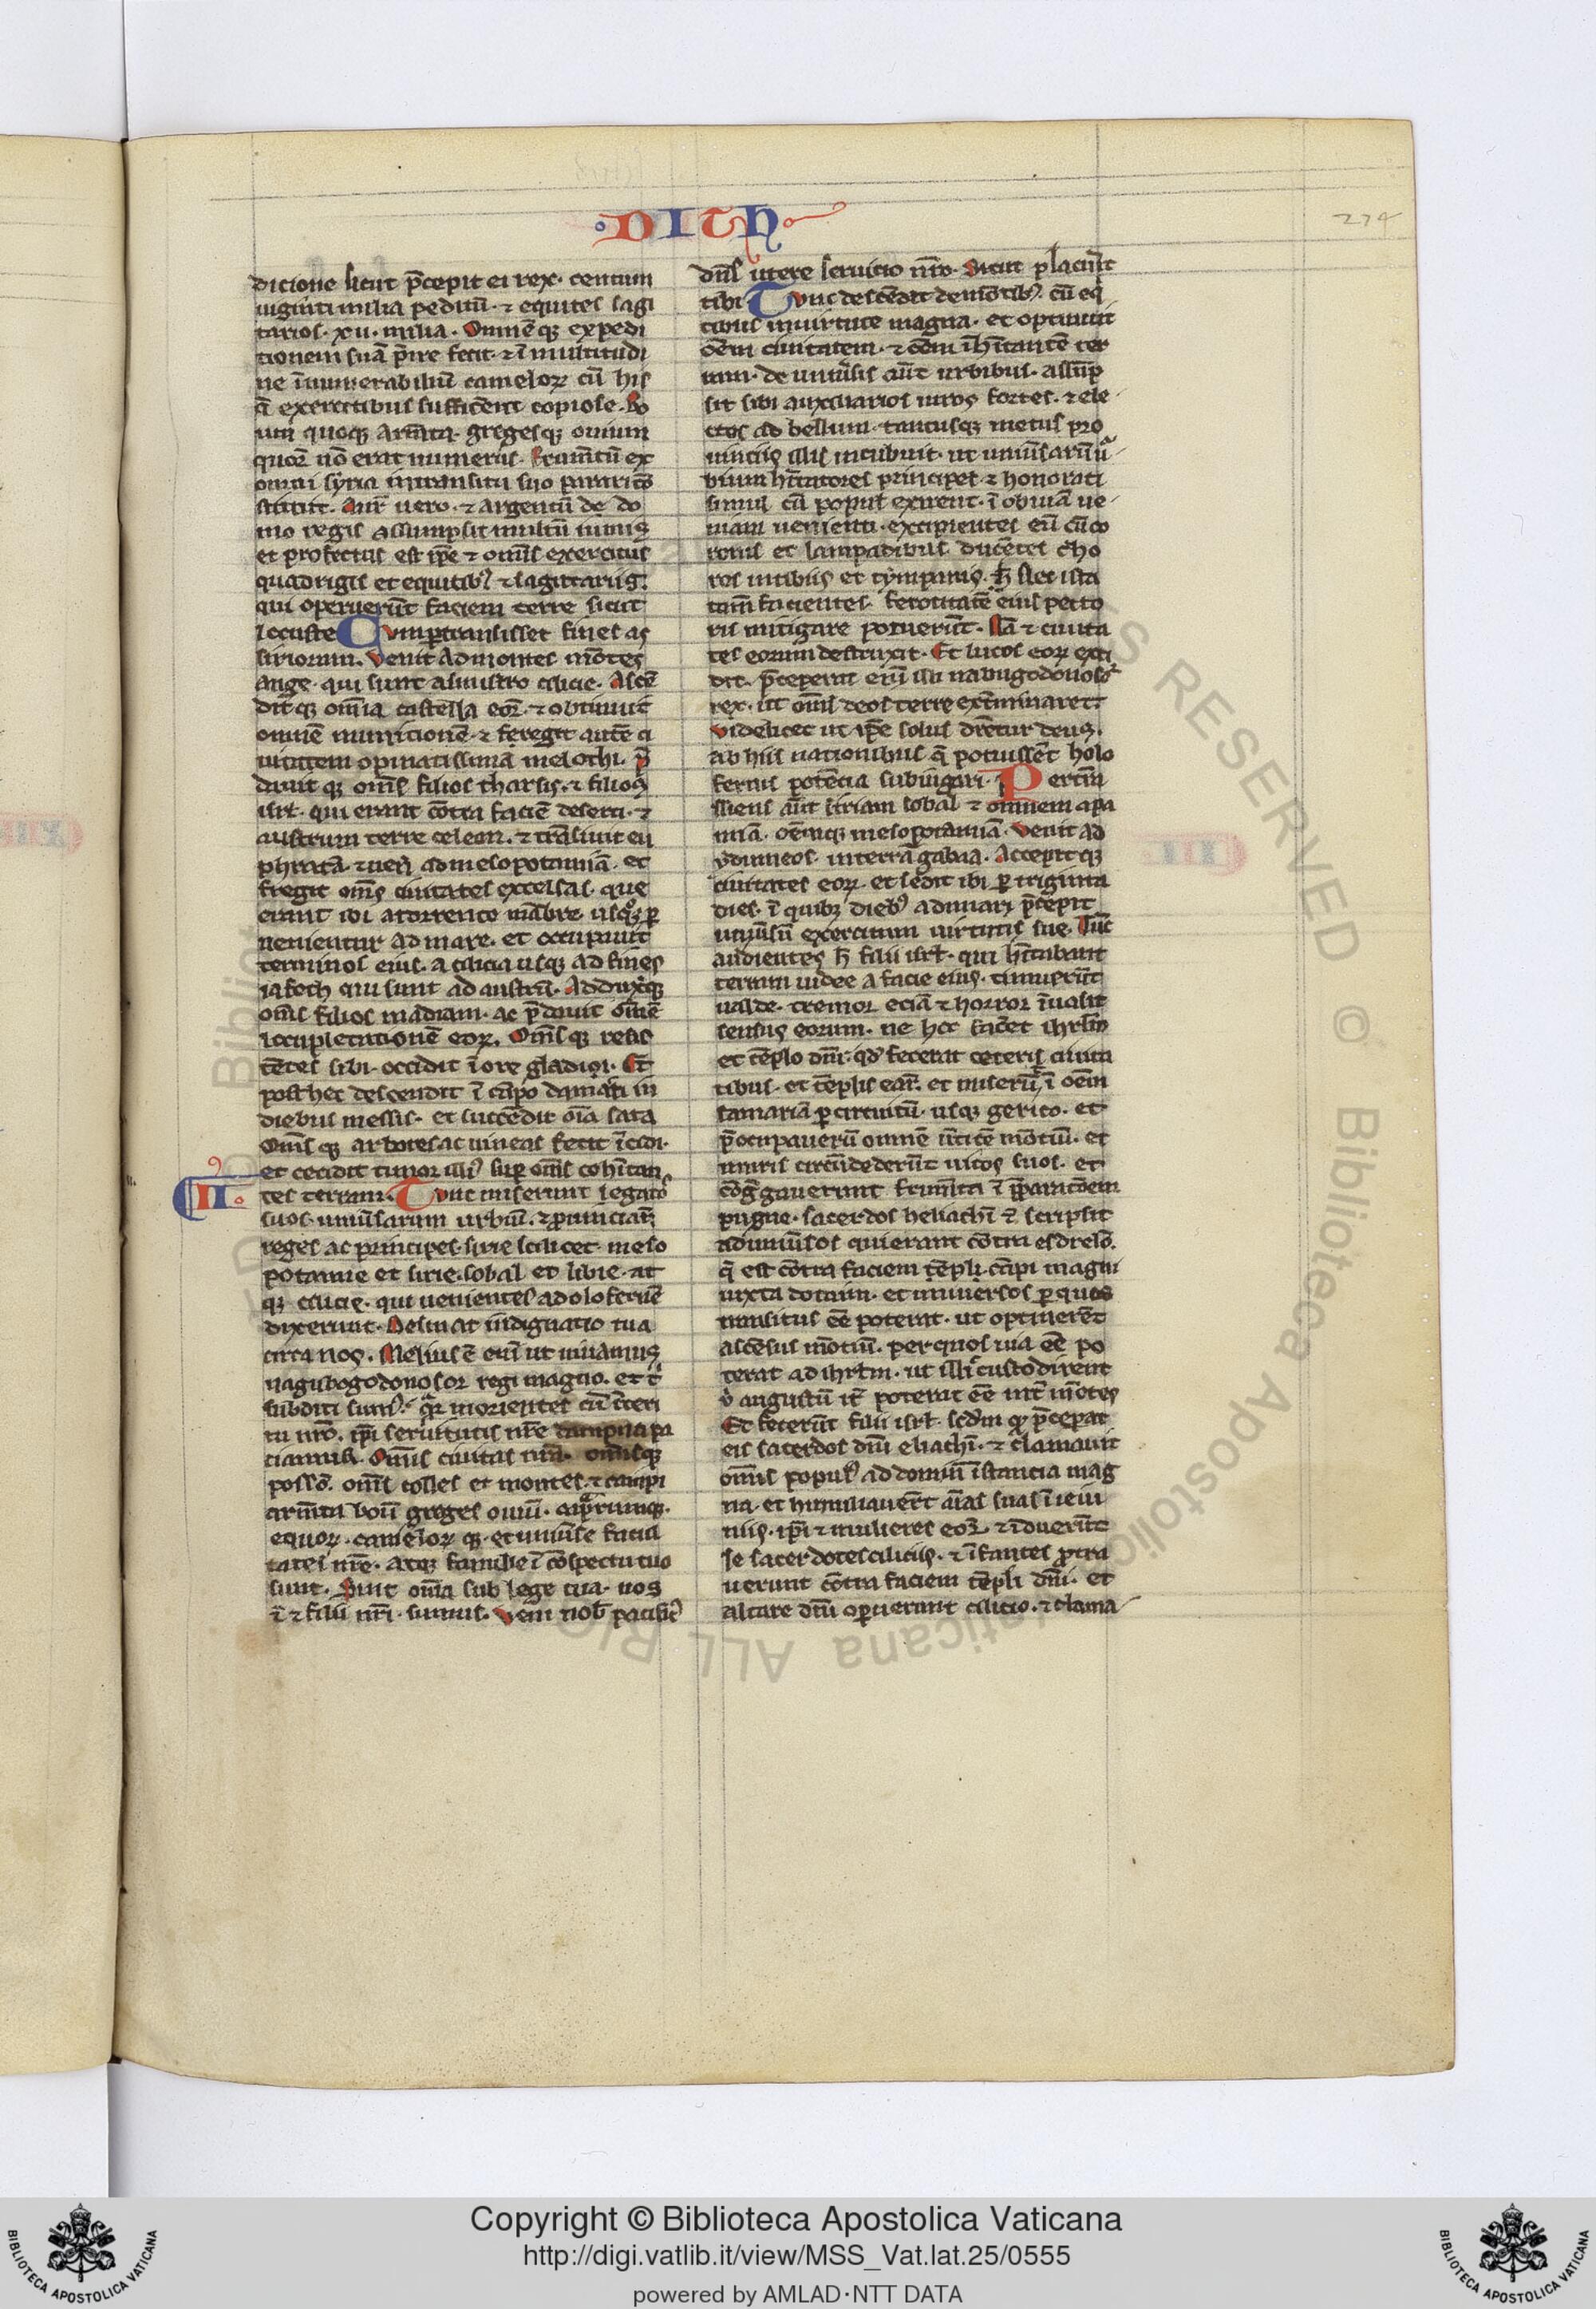 DITH
274
dicione sicut p̄cepit ei rex. centum
uiginti milia peditū. ⁊ equites sagi
tarios. xii. milia. Omnē qꝫ expedi
tionem suā p̄ire fecit. ⁊ ī multitudi
ne īnumerabiliū cameloꝝ cū his
q̄ exercitibus sufficerēt copiose. Bo
um quoqꝫ armēta. gregesqꝫ ouium
quoꝝ nō erat numerus. Frumētū ex
omni syria in transitu suo parari cō
stituit. Aurū uero. ⁊ argentū de do
mo regis assumpsit multū nimis
et profectus est ip̄e ⁊ om̄is exercitus
quadrigis et equitibꝰ ⁊ sagittariis.
qui operuerūt faciem terre sicut
locuste Cum ꝑtransisset fines as
siriorum. Venit ad montes mōtes
ange. qui sunt a sinistro cilicie. Ascē
dit qꝫ om̄ia castella eoꝝ. ⁊ obtinuit
omnē munitionē. ⁊ feregit autē ci
uitatem opinatissimā melothi. P̄
dauit qꝫ om̄s filios tharsis. ⁊ filios
isrl. qui erant cōtra faciē deserti. ⁊
austrum terre celeon. ⁊ trāsiuit eu
phratē. ⁊ uenit ad mesopotamiā. et
fregit om̄s ciuitates excelsas. que
erant ibi a torrente mābre. usqꝫ ꝑ
uenientur ad mare. et occupauit
terminos eius. a cilicia usqꝫ ad fines
iafeth qui sunt ad austrū. Adduxitqꝫ
om̄s filios madiam. ac p̄dauit om̄ē
locupletationē eoꝝ. Om̄s qꝫ resis
tētes sibi. occidit ī ore gladii. Et
post hec descendit ī cāpo damasci in
diebus messis. et succēdit oīa sata
Om̄s qꝫ arbores ac uineas fecit īcidi.
et cecidit timor illiꝰ suꝑ om̄s cohītan
II.
tes terram. Tunc miserunt legatos
suos. uniūsarum urbiū. ⁊ prouinciarū
reges ac principes. sirie scilicet. meso
potamie et sirie. sobal et libie. at
qꝫ cilicie. qui uenientes ad olofernē
dixerunt. Desinat indignatio tua
circa nos. Melius ē enī ut uiuamus
nagubogodonosor regi magno. et t̄
subditi sumꝰ. qͣꝫ morientes cū īteri
tu nr̄o. ip̄i seruitutis nr̄e dampna pa
tiamur. Omnis ciuitas nr̄a. om̄isqꝫ
possō. om̄s colles et montes. ⁊ campi
armēta boū greges ouiū. capͣrumqꝫ.
equoꝝ. cameloꝝ qꝫ. et uniūse facul
tates nr̄e. atqꝫ familie ī cōspectu tuo
sunt. Sint om̄ia sub lege tua. nos
ī ⁊ filii nr̄i. sumus. Veni nob̄ pacificꝰ
dn̄s utere seruicio nr̄o. Sicut placuerit
tibi Tunc descēdit de mōtibꝰ. cū eqͥ
tibus in uirtute magna. et optinuit
oēm ciuitatem. ⁊ oēm īhītantē ter
ram. de uniūsis aūt urbibus. assūp
sit sibi auxiliarios uiros fortes. ⁊ ele
ctos ad bellum. tantusqꝫ metus pro
uinciis illis incubuit. ut uniūsarū ur
bium hītatores principes ⁊ honorati
simul cū populis exirent. ī obuiā ue
niam uenienti. excipientes eū cū co
ronis et lampadibus. ducētes cho
ros in tibiis et tympanis. H̄ Nec ista
tam̄ facientes. ferocitatē eius pecto
ris mitigare potuerūt. Nā ⁊ ciuita
tes eorum destruxit. Et lucos eoꝝ exci
dit. p̄ceperat enī illi nabugodonosor
rex. ut om̄s deos terre extīminaret.
Videlicet ut ip̄e solus dr̄etur deus.
ab hiis nationibus q̄ potuissēt holo
fernis potēcia subiugari. Pertrā
siens aūt siriam sobal ⁊ omnem apa
miā. oēmqꝫ mesopotamiā. Venit ad
ydumeos. in terrā gabaa. Accepit qꝫ
ciuitates eoꝝ. et sedit ibi ꝑ triginta
dies. ī quibꝫ diebꝰ adunari p̄cepit
uniūsū exercitum uirtutis sue. Tūc
audientes h̄ filii isrl. qui hītabant
terram iudee a facie eius. timuerūt
ualde. tremor eciā ⁊ horror īuasit
sensus eorum. ne hoc facēt ihrlm̄
et tēplo dn̄i. qđ fecerat ceteris ciuita
tibus. et tēplis eaꝝ. et miserūt ī oēm
samariā ꝑ circuitū. usqꝫ gerico. et
p̄ocupauerūt omnē ūticē mōtiū. et
muris circūdederūt uicos suos. et
cōgͣgauerunt frumēta ī p̄paratōem
pugne. sacerdos heliachī ⁊ scripsit
ad uniūsos qui erant cōtra esdrelō.
q̄ est cōtra faciem tēpli. cāpi magni
iuxta dotain. et uniuersos ꝑ quos
transitus eē poterat. ut optinerēt
ascēsus mōtiū. per quos uia eē po
terat ad ihrlm. ut illic custodirent
ubi angustū itͣ poterat eē intͣ mōtes
Et fecerūt filii isrl. scdm qđ p̄ceperat
eis sacerdos dn̄i eliachī. ⁊ clamauit
omnis populꝰ ad dominū īstancia mag
na. et humiliauerūt aīas suas ī ieiu
niis. ip̄i ⁊ mulieres eoꝝ. ⁊ īduerūt
se sacerdotes ciliciis. ⁊ īfantes ꝓstra
uerunt cōtra faciem tēpli dn̄i. et
altare dn̄i oꝑuerunt cilicio. ⁊ clama
Copyright © Biblioteca Apostolica Vaticana
http://digi.vatlib.it/view/MSS_Vat.lat.25/0555
powered by AMLAD·NTT DATA
BIBLIOTECA APOSTOLICA VATICANA
BIBLIOTECA APOSTOLICA VATICANA